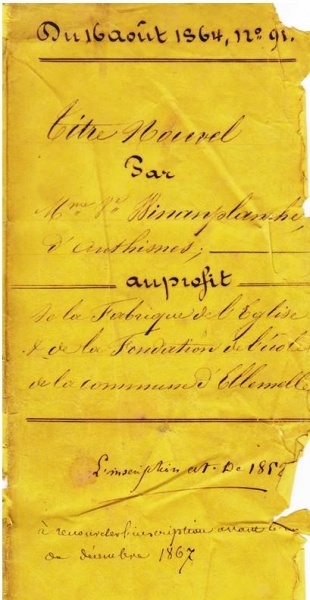 Du 16 août 1864, n° 91.
Titre Nouvel
Par
Mme Ve Binanplanche,
d'Anthisnes;
au profit
de la Fabrique de l'Eglise
& de la Fondation de l'école
de la commune d'Ellemelle
L'inscription est De 185
à renouveler l'inscription avant le
de décembre 1867